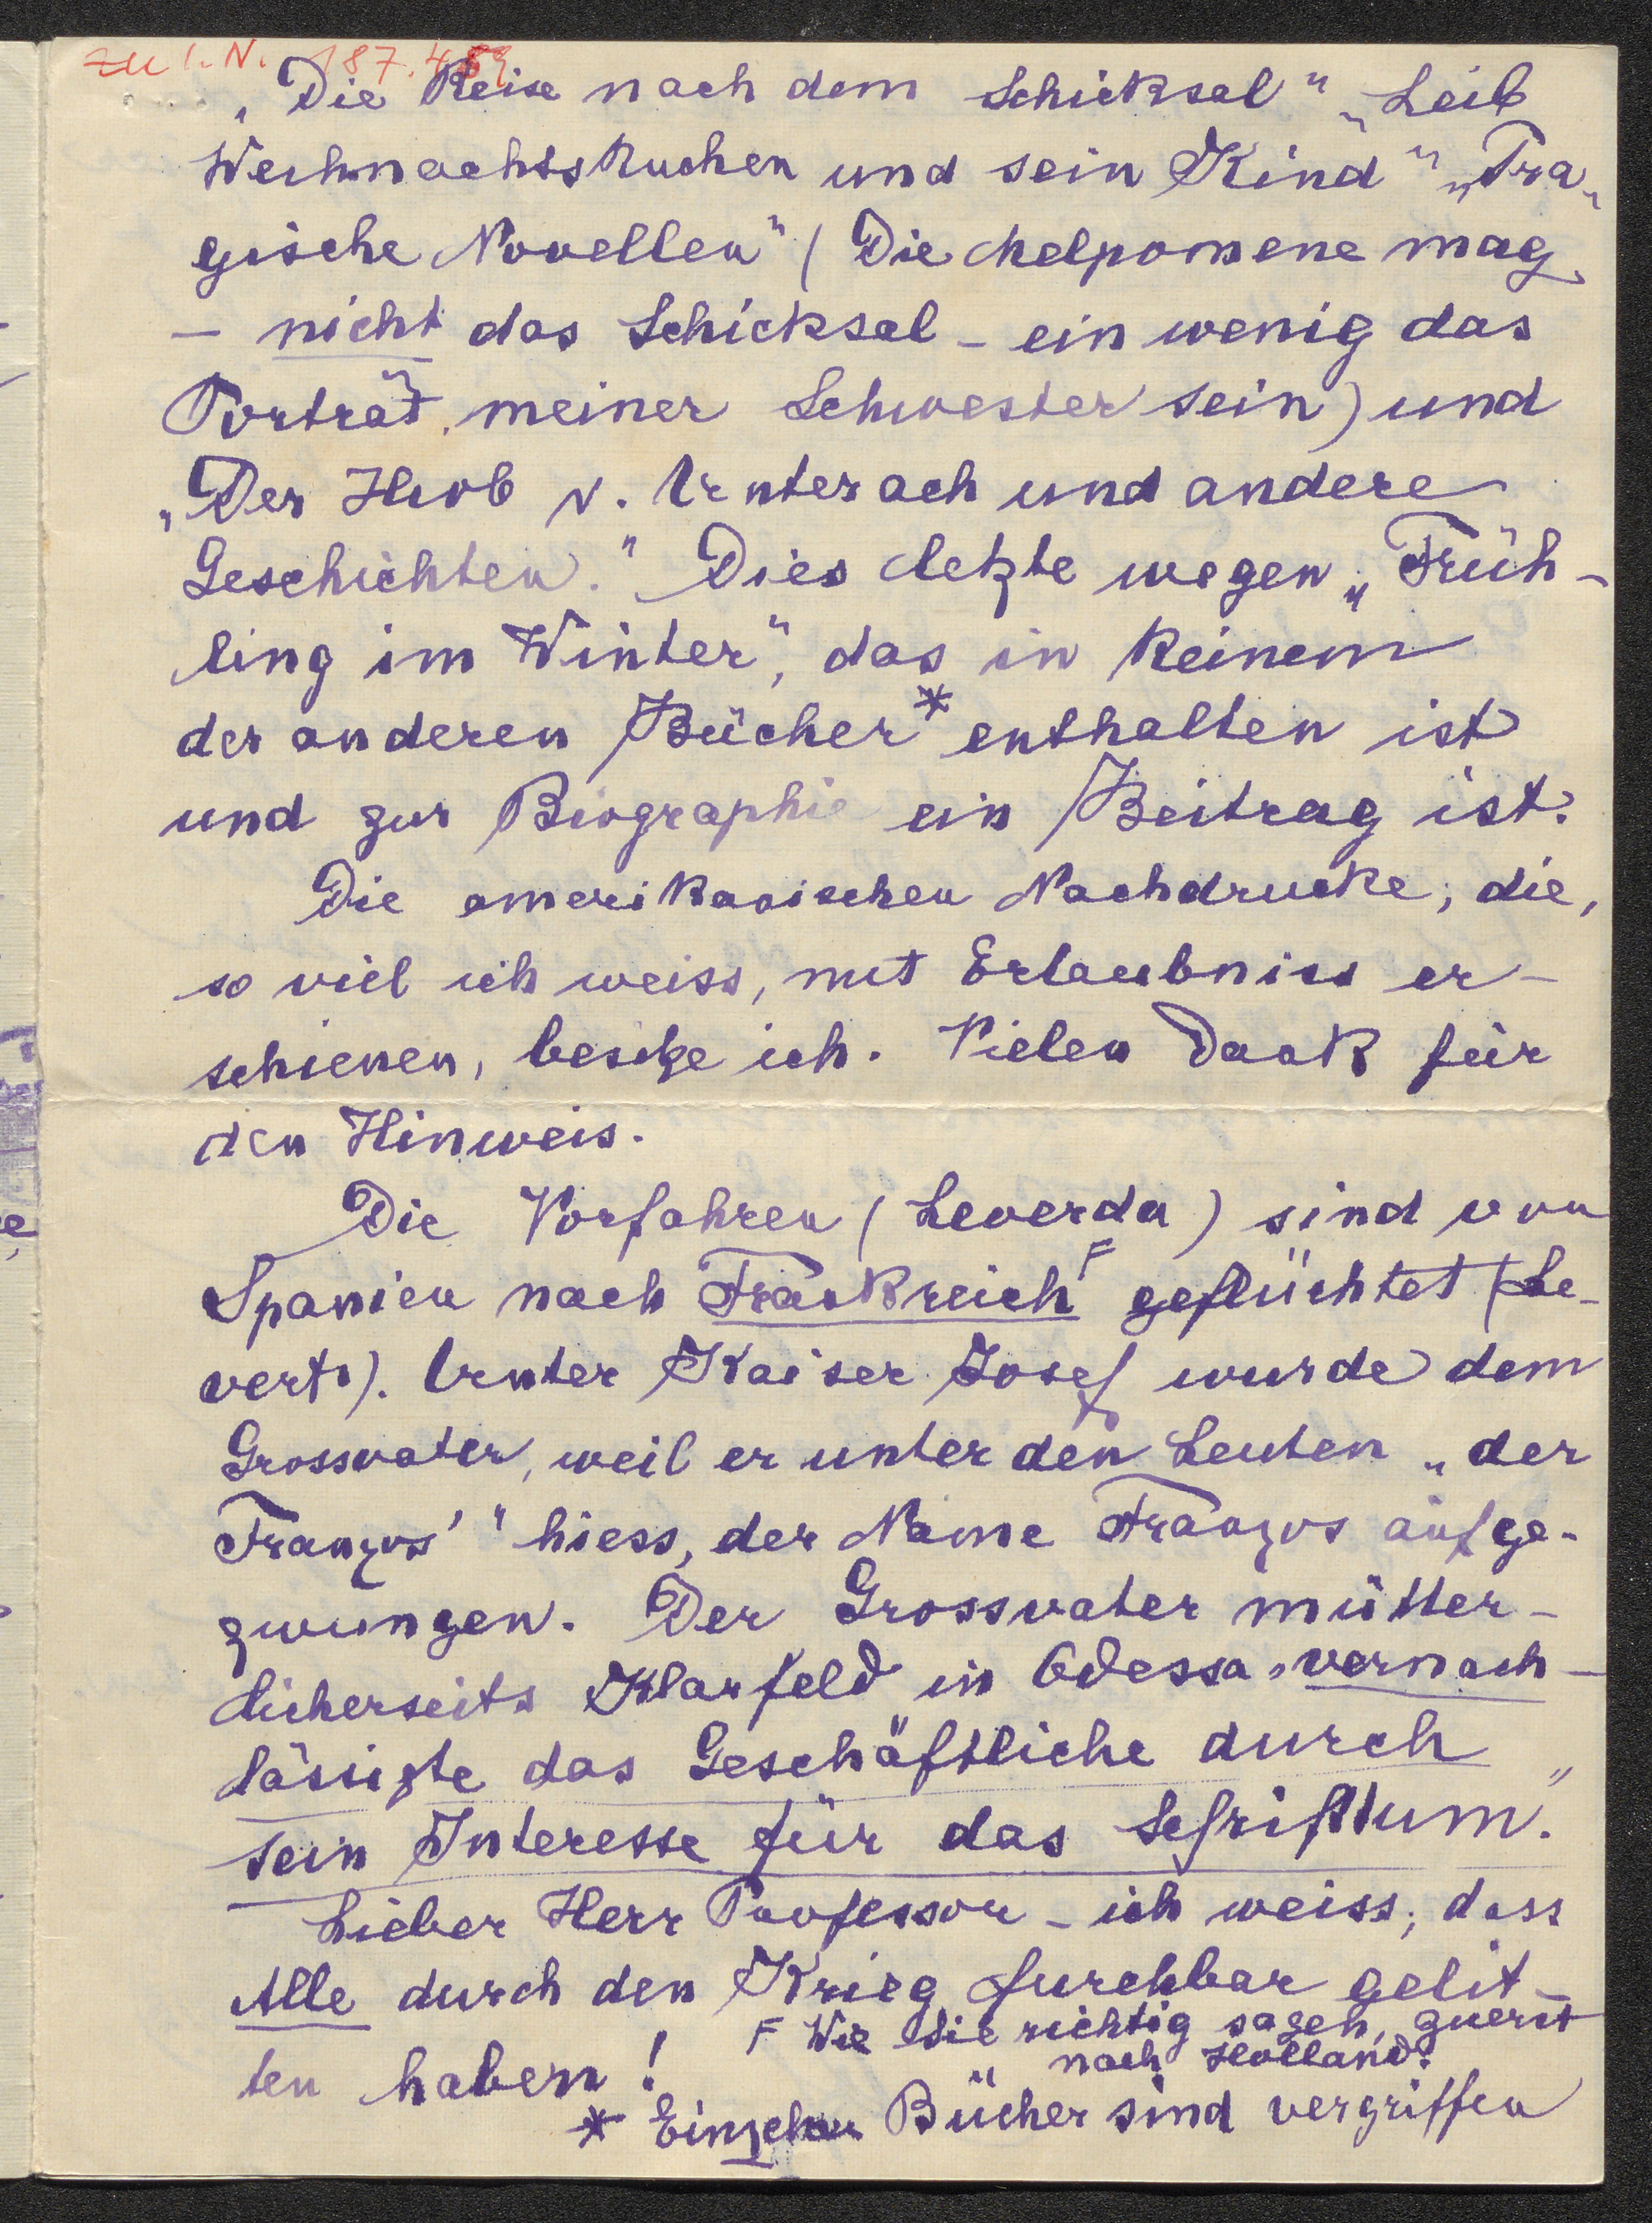 zu I. N. 187.489
„Die Reise nach dem Schicksal" „Leib
Weihnachtskuchen und sein Kind" „Tra-
gische Novellen" (Die Melpomene mag
– nicht das Schicksal – ein wenig das
Porträt meiner Schwester sein) und
„Der Hiob v. Unterach und andere
Geschichten." Dies letzte wegen „Früh-
ling im Winter", das in keinem
der anderen Bücher* enthalten ist
und zur Biographie ein Beitrag ist.
Die amerikanischen Nachdrucke, die,
so viel ich weiss, mit Erlaubniss er-
schienen, besitze ich. Vielen Dank für
den Hinweis.
Die Vorfahren (Leverda) sind von
Spanien nach Frankreich F geflüchtet (Le-
vert). Unter Kaiser Josef wurde dem
Grossvater, weil er unter den Leuten „der
Franzos'" hiess, der Name Franzos aufge-
zwungen. Der Grossvater mütter-
licherseits Klarfeld in Odessa „vernach-
lässigte das Geschäftliche durch
sein Interesse für das Schrifttum."
Lieber Herr Professor – ich weiss, dass
Alle durch den Krieg furchbar gelit-
ten haben!
F Wie Sie richtig sagen, zuerst
nach Holland.
* Einzelne Bücher sind vergriffen